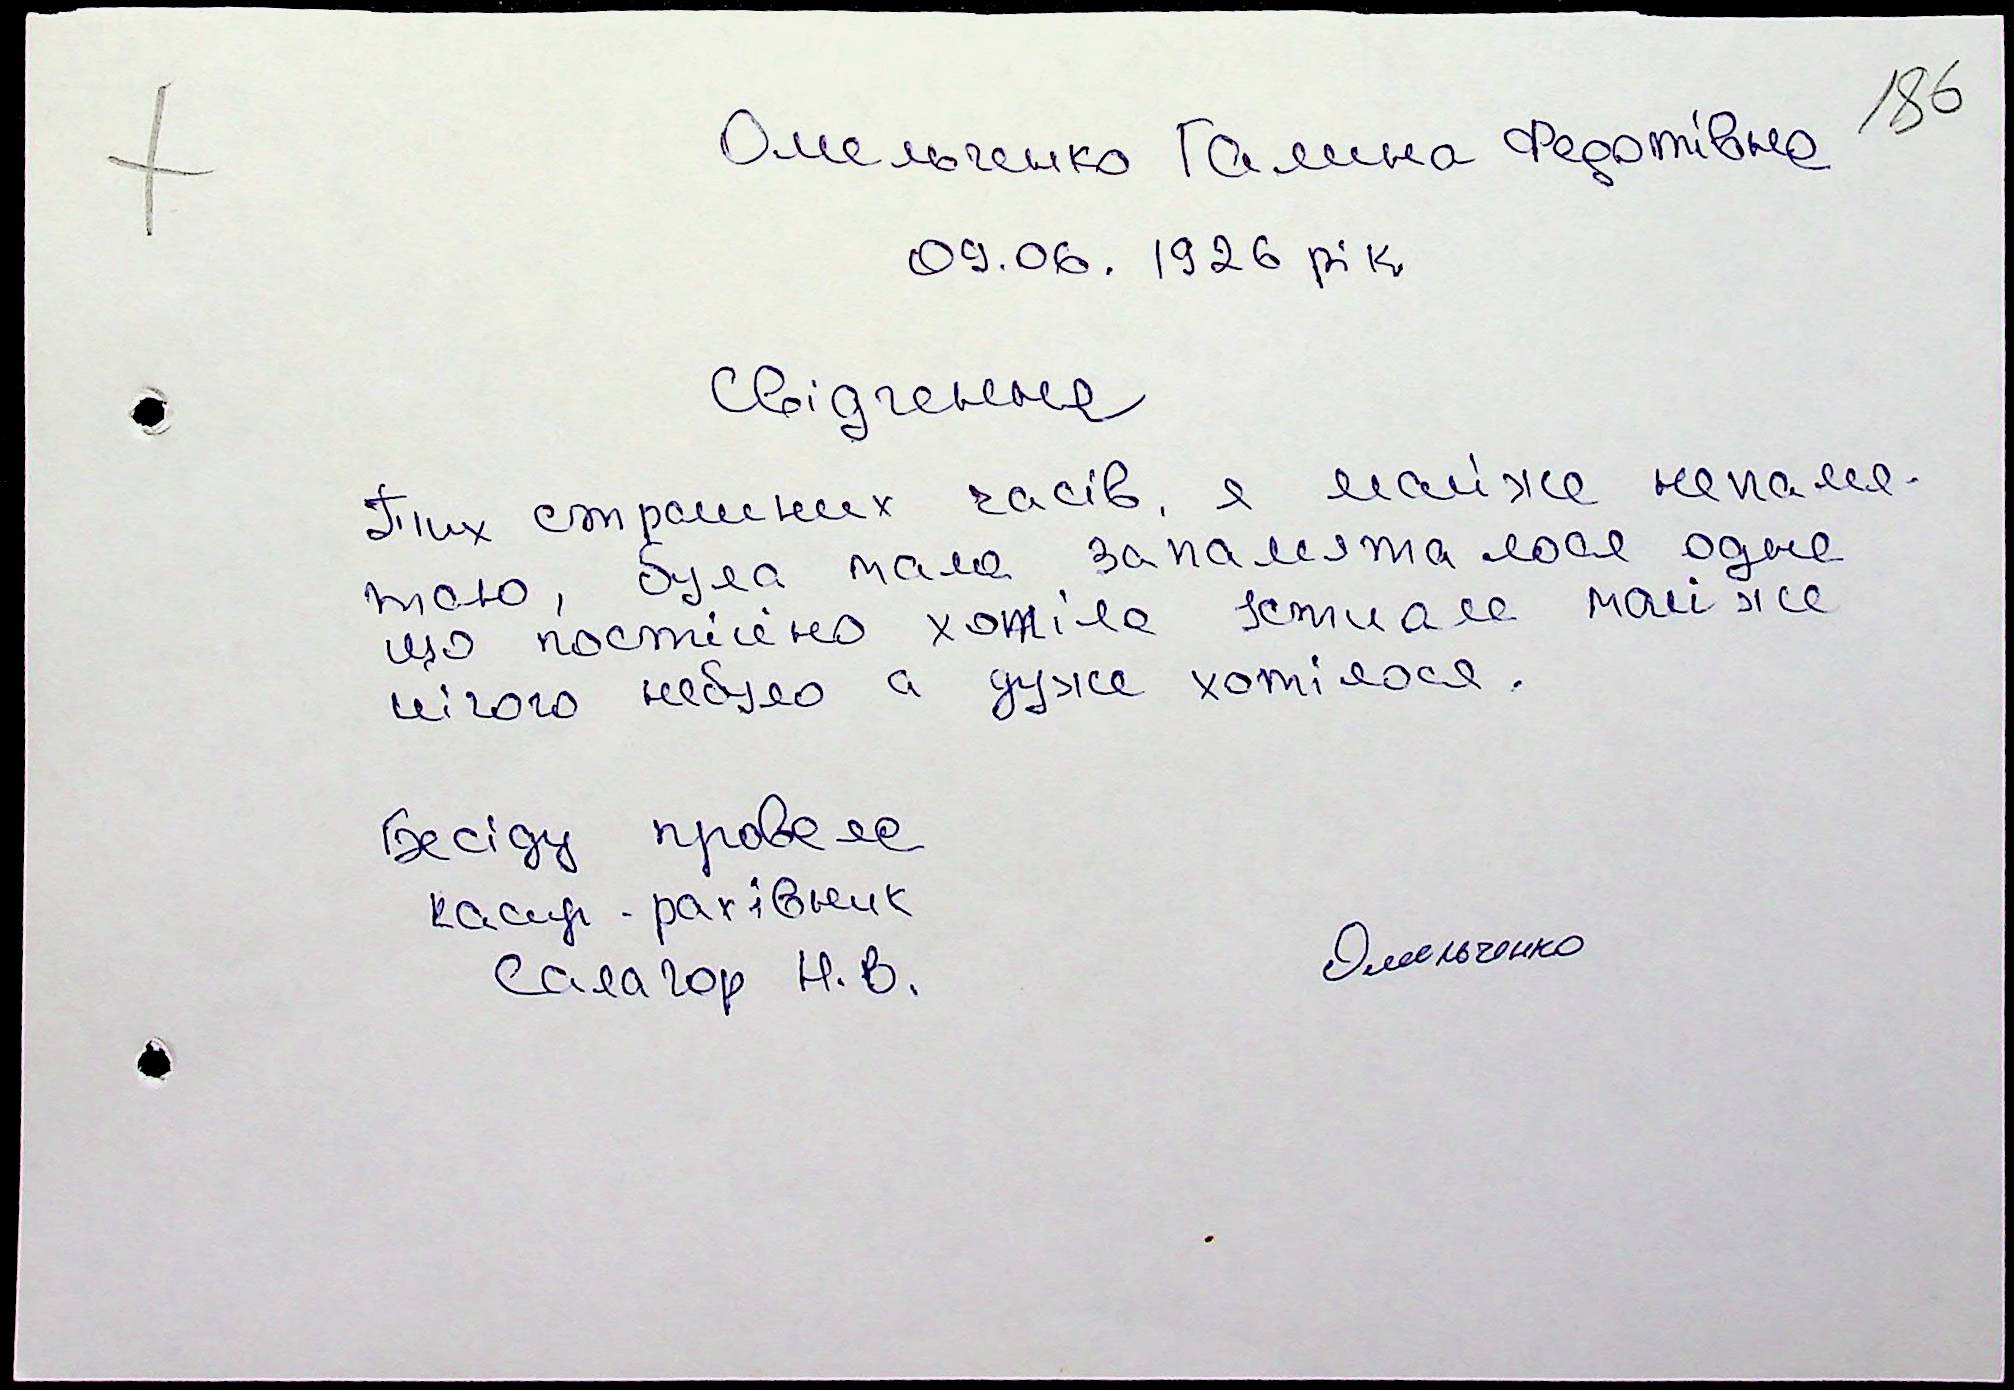 186
Омельченко Галина Федотівна
09.06. 1926 рік
Свідчення
Тих страшних часів, я майже непамя-
таю, була мала запамяталося одне
що постійно хотіла їсти але майже
нічого небуло а дуже хотілося.
Бесіду провела
касир - рахівник
Салагор Н.В.
Омельченко